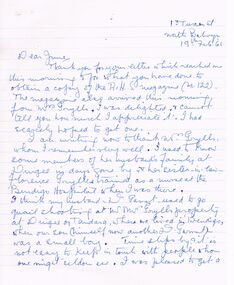 Nth Balwyn
19th Feb 65
Dear June,
Thank you for your letter which reached me
this morning & for what you have done to
obtain a copy of the R.H.S. magazine (No 122).
The magazine also arrived this morning
from Mrs. I was delighted & cannot
tell you how much I appreciate it. I had
scarcely hoped to get one.
I am writing now to thank Mrs
whom I remember very well. I used to know
some members of her husband's family, at
in days gone by & her sister-in-law
Florence trained as a nurse at the
Bendigo Hospital when I was there.
I think my husband used to go
quail shooting at Mr & Mrs property
at when we lived in Bendigo,
when our son himself now another
was a small boy. Time slips by & it is
not easy to keep in touch with people whom
one might seldom see. I was pleased to get a